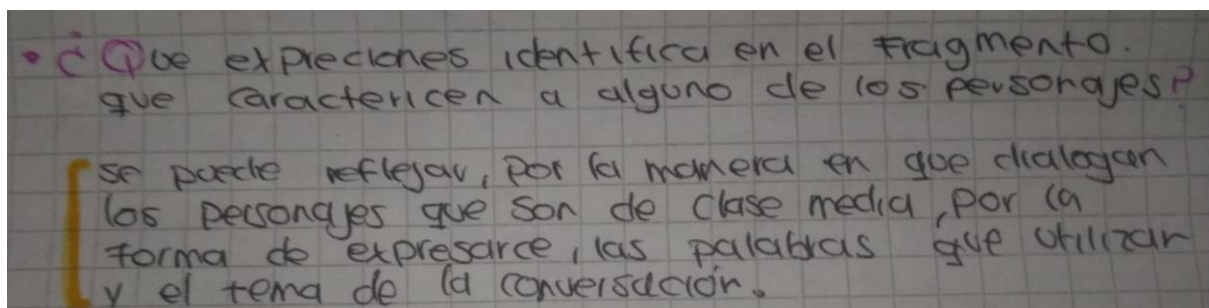 • ¿Que expreciones identifica en el fragmento.
que caractericen a alguno de los personajes?
se puede reflejar, por la manera en que dialogan
los personajes que son de clase media, por la
forma de expresarce, las palabras que utilizan
y el tema de la conversación.